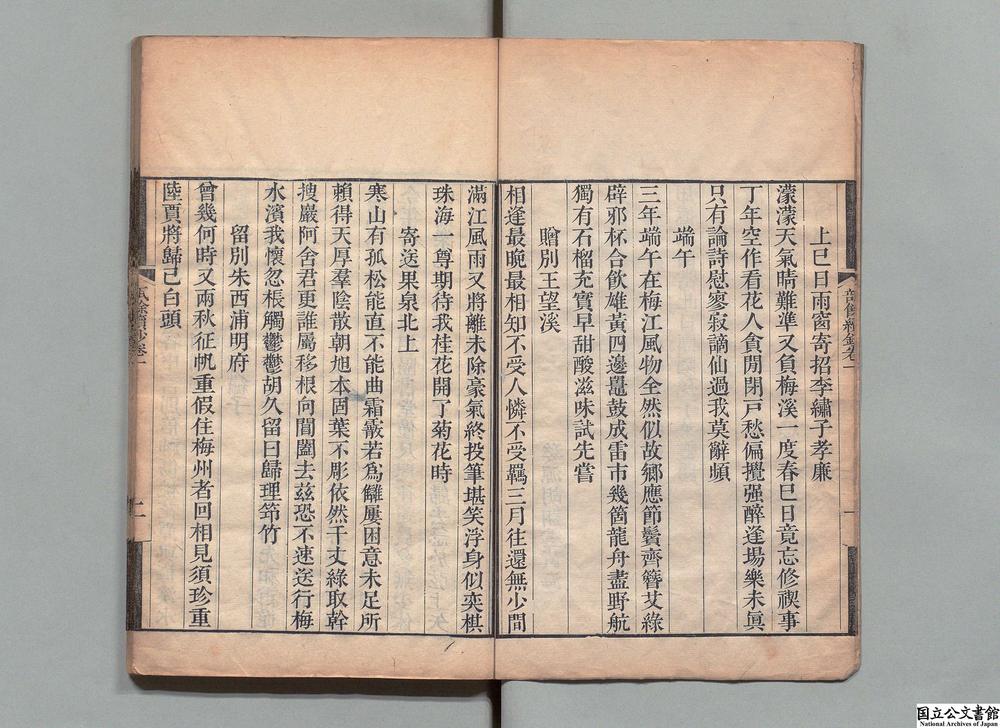 上巳日雨窗寄招李繡子孝廉
濛濛天氣晴難準又負梅溪一度春巳日竟忘修禊事
丁年空作看花人貪閒閉戸愁偏攪强醉逢塲樂未眞
只有論詩慰寥寂謫仙過我莫辭頻
端午
三年端午在梅江風物全然似故鄉應節鬢齊簪艾綠
辟邪杯合飲雄黃四邊鼉鼓成雷市幾箇龍舟盡野航
獨有石榴充實早甜酸滋味試先嘗
贈別王望溪
相逢最晚最相知不受人憐不受羈三月往還無少間
滿江風雨又將離未除豪氣終投筆堪笑浮身似奕棋
珠海一尊期待我桂花開了菊花時
寄送果泉北上
寒山有孤松能直不能曲霜霰若爲讎屢困意未足所
賴得天厚羣陰散朝旭本固葉不彫依然千丈綠取幹
搜巖阿舍君更誰屬移根向閶闔去茲恐不速送行梅
水濱我懷忽棖觸鬱鬱胡久留曰歸理筇竹
留別朱西浦明府
曾幾何時又兩秋征帆重假住梅州者回相見須珍重
陸賈將歸已白頭
二
国立公文書館
National Archives of Japan